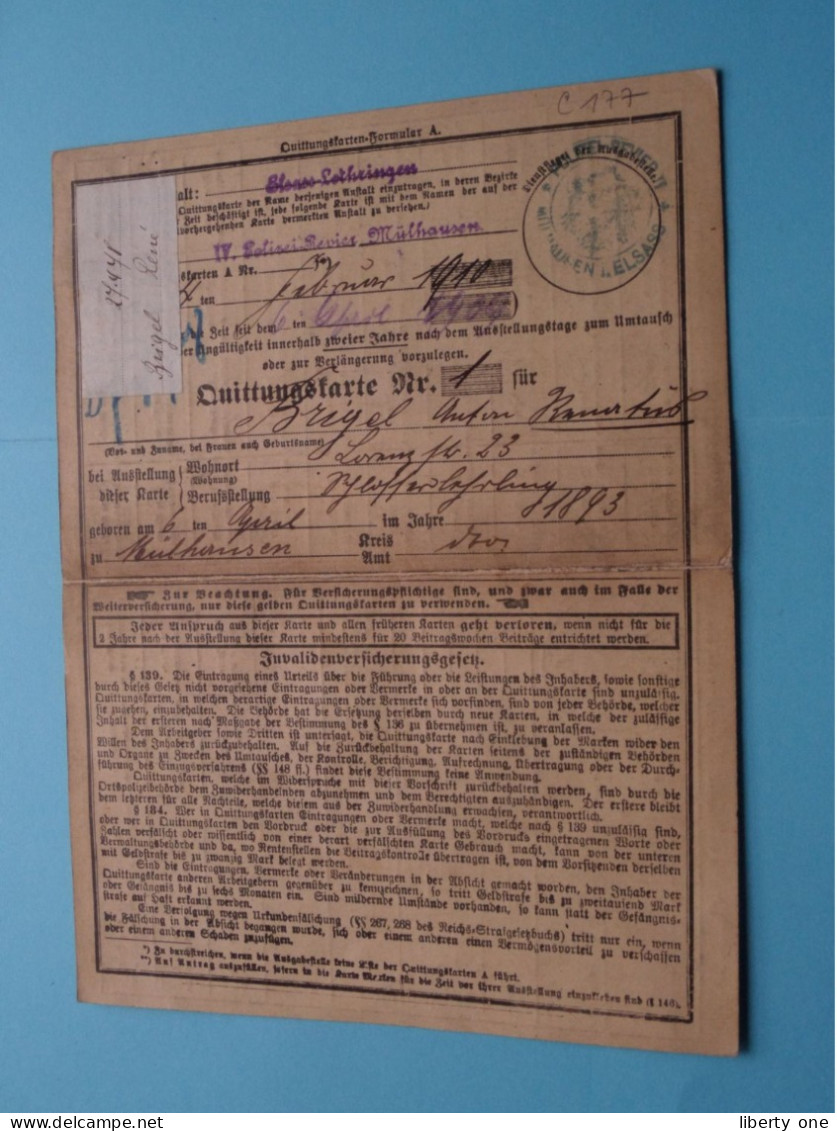 C 177
Quittungskarten-Formular A.
alt: Elsass-Lothringen
Quittungskarte der Name derjenigen Anstalt einzutragen, in deren Bezirke
Zeit beschäftigt ist, jede folgende Karte ist mit dem Namen der auf der
vorhergehenden Karte vermerkten Anstalt zu versehen.)
IV. Polizei-Revier Mülhausen
skarten A Nr. *)
4 ten Februar 1910
Zeit seit dem 6 ten April 190
er Ungültigkeit innerhalb zweier Jahre nach dem Ausstellungstage zum Umtausch
oder zur Verlängerung vorzulegen.
Quittungskarte Nr. 1 für
Brigel Anton Renatus
(Vor- und Zuname, bei Frauen auch Geburtsname)
bei Ausstellung dieser Karte
Wohnort (Wohnung) Lorenzstr. 23
Berufsstellung Schlosserlehrling
geboren am 6 ten April im Jahre 1893
zu Mülhausen Kreis Amt dto.
MÜLHAUSEN i. ELSASS
Brigel René
Zur Beachtung. Für Versicherungspflichtige sind, und zwar auch im Falle der
Weiterversicherung, nur diese gelben Quittungskarten zu verwenden.
Jeder Anspruch aus dieser Karte und allen früheren Karten geht verloren, wenn nicht für die
2 Jahre nach der Ausstellung dieser Karte mindestens für 20 Beitragswochen Beiträge entrichtet werden.
Invalidenversicherungsgesetz.
§ 139. Die Eintragung eines Urteils über die Führung oder die Leistungen des Inhabers, sowie sonstige
durch dieses Gesetz nicht vorgesehene Eintragungen oder Vermerke in oder an der Quittungskarte sind unzulässig.
Quittungskarten, in welchen derartige Eintragungen oder Vermerke sich vorfinden, sind von jeder Behörde, welcher
sie zugehen, einzubehalten. Die Behörde hat die Ersetzung derselben durch neue Karten, in welche der zulässige
Inhalt der ersteren nach Maßgabe der Bestimmung des § 136 zu übernehmen ist, zu veranlassen.
Dem Arbeitgeber sowie Dritten ist untersagt, die Quittungskarte nach Einklebung der Marken wider den
Willen des Inhabers zurückzubehalten. Auf die Zurückbehaltung der Karten seitens der zuständigen Behörden
und Organe zu Zwecken des Umtausches, der Kontrolle, Berichtigung, Aufrechnung, Übertragung oder der Durch-
führung des Einzugsverfahrens (§§ 148 ff.) findet diese Bestimmung keine Anwendung.
Quittungskarten, welche im Widerspruche mit dieser Vorschrift zurückbehalten werden, sind durch die
Ortspolizeibehörde dem Zuwiderhandelnden abzunehmen und dem Berechtigten auszuhändigen. Der erstere bleibt
dem letzteren für alle Nachteile, welche diesem aus der Zuwiderhandlung erwachsen, verantwortlich.
§ 184. Wer in Quittungskarten Eintragungen oder Vermerke macht, welche nach § 139 unzulässig sind,
oder wer in Quittungskarten den Vordruck oder die zur Ausfüllung des Vordrucks eingetragenen Worte oder
Zahlen verfälscht oder wissentlich von einer derart verfälschten Karte Gebrauch macht, kann von der unteren
Verwaltungsbehörde und da, wo Rentenstellen die Beitragskontrolle übertragen ist, von dem Vorsitzenden derselben
mit Geldstrafe bis zu zwanzig Mark belegt werden.
Sind die Eintragungen, Vermerke oder Veränderungen in der Absicht gemacht worden, den Inhaber der
Quittungskarte anderen Arbeitgebern gegenüber zu kennzeichnen, so tritt Geldstrafe bis zu zweitausend Mark
oder Gefängnis bis zu sechs Monaten ein. Sind mildernde Umstände vorhanden, so kann statt der Gefängnis-
strafe auf Haft erkannt werden.
Eine Verfolgung wegen Urkundenfälschung (§§ 267, 268 des Reichs-Strafgesetzbuchs) tritt nur ein, wenn
die Fälschung in der Absicht begangen wurde, sich oder einem anderen einen Vermögensvorteil zu verschaffen
oder einem anderen Schaden zuzufügen.
*) Zu durchstreichen, wenn die Ausgabestelle keine Liste der Quittungskarten A führt.
**) Auf Antrag auszufüllen, sofern in die Karte Marken für die Zeit vor ihrer Ausstellung einzukleben sind (§ 146).
liberty one